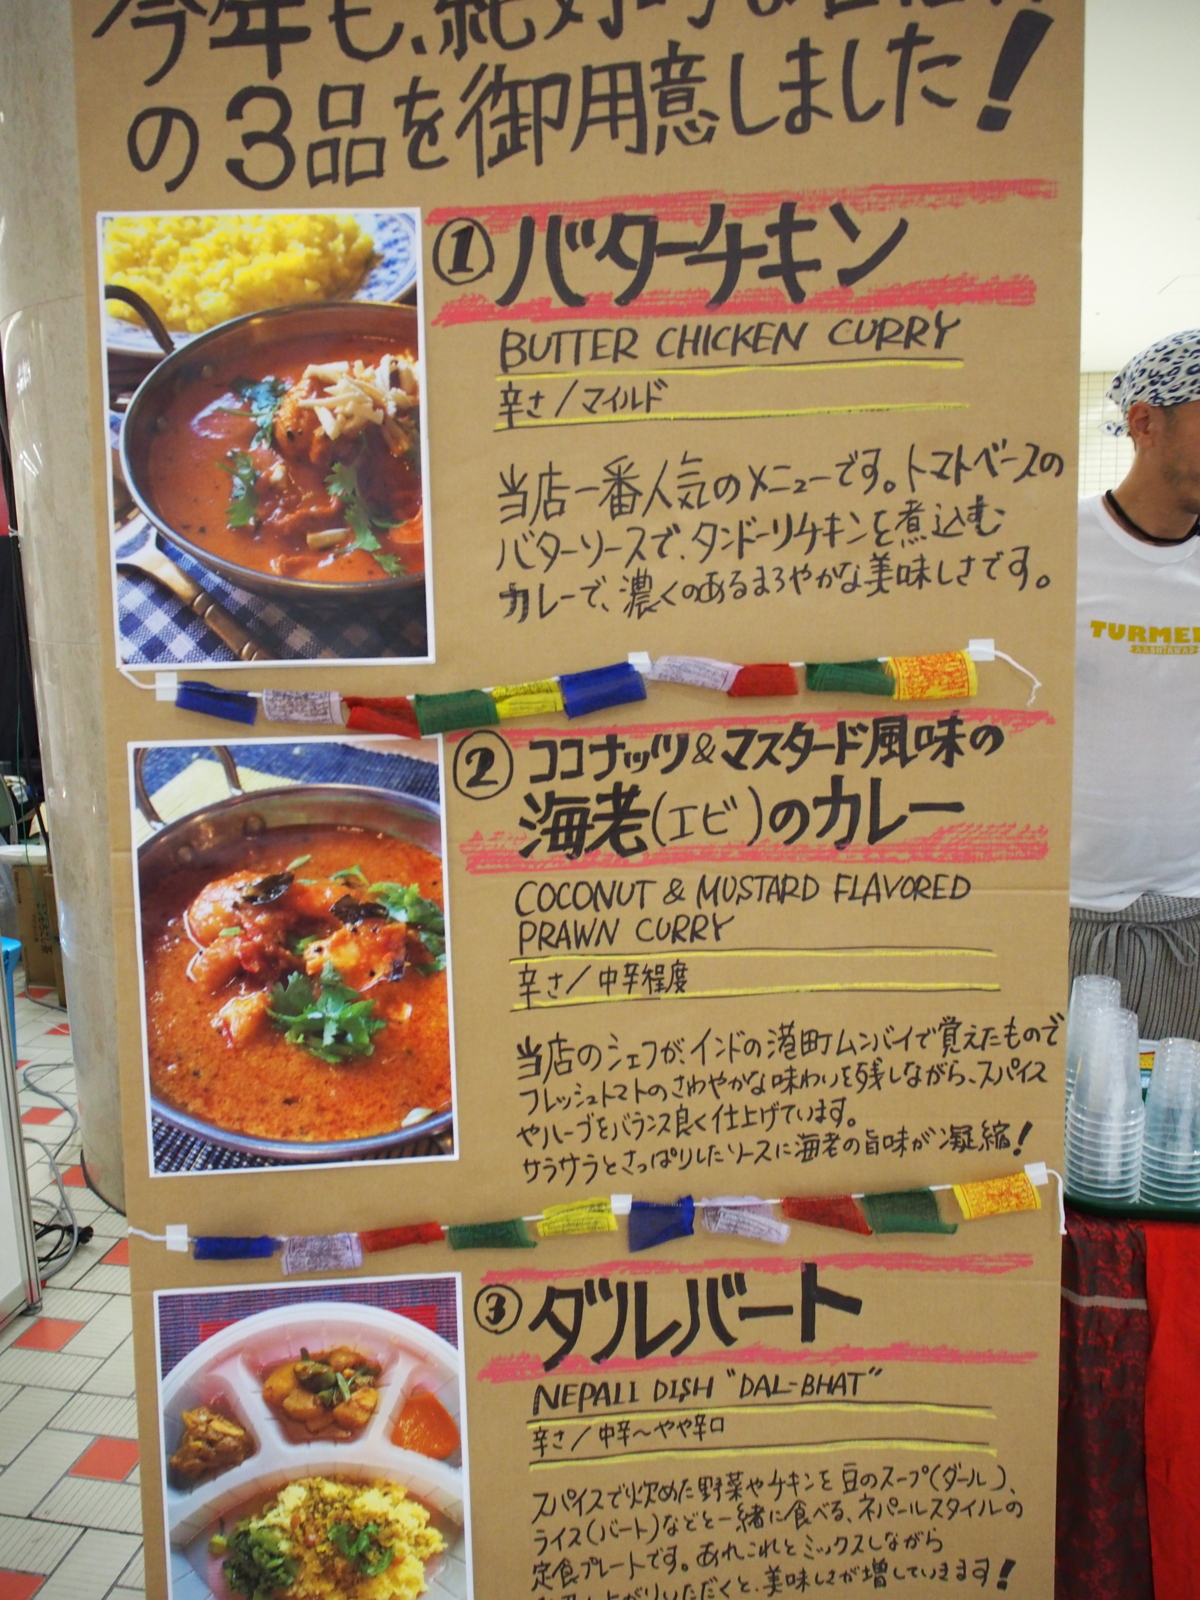 今年も、絶対的な自信
の3品を御用意しました!
① バターチキン
BUTTER CHICKEN CURRY
辛さ/マイルド
当店一番人気のメニューです。トマトベースの
バターソースで、タンドーリチキンを煮込む
カレーで、濃くのあるまろやかな美味しさです。
② ココナッツ&マスタード風味の
海老(エビ)のカレー
COCONUT & MUSTARD FLAVORED
PRAWN CURRY
辛さ/中辛程度
当店のシェフが、インドの港町ムンバイで覚えたもので
フレッシュトマトのさわやかな味わいを残しながら、スパイス
やハーブをバランス良く仕上げています。
サラサラとさっぱりしたソースに海老の旨味が凝縮!
③ ダルバート
NEPALI DISH "DAL-BHAT"
辛さ/中辛〜やや辛口
スパイスで炊めた野菜やチキンを豆のスープ(ダール)、
ライス(バート)などと一緒に食べる、ネパールスタイルの
定食プレートです。あれこれとミックスしながら
お召し上がりいただくと、美味しさが増していきます!
TURMER